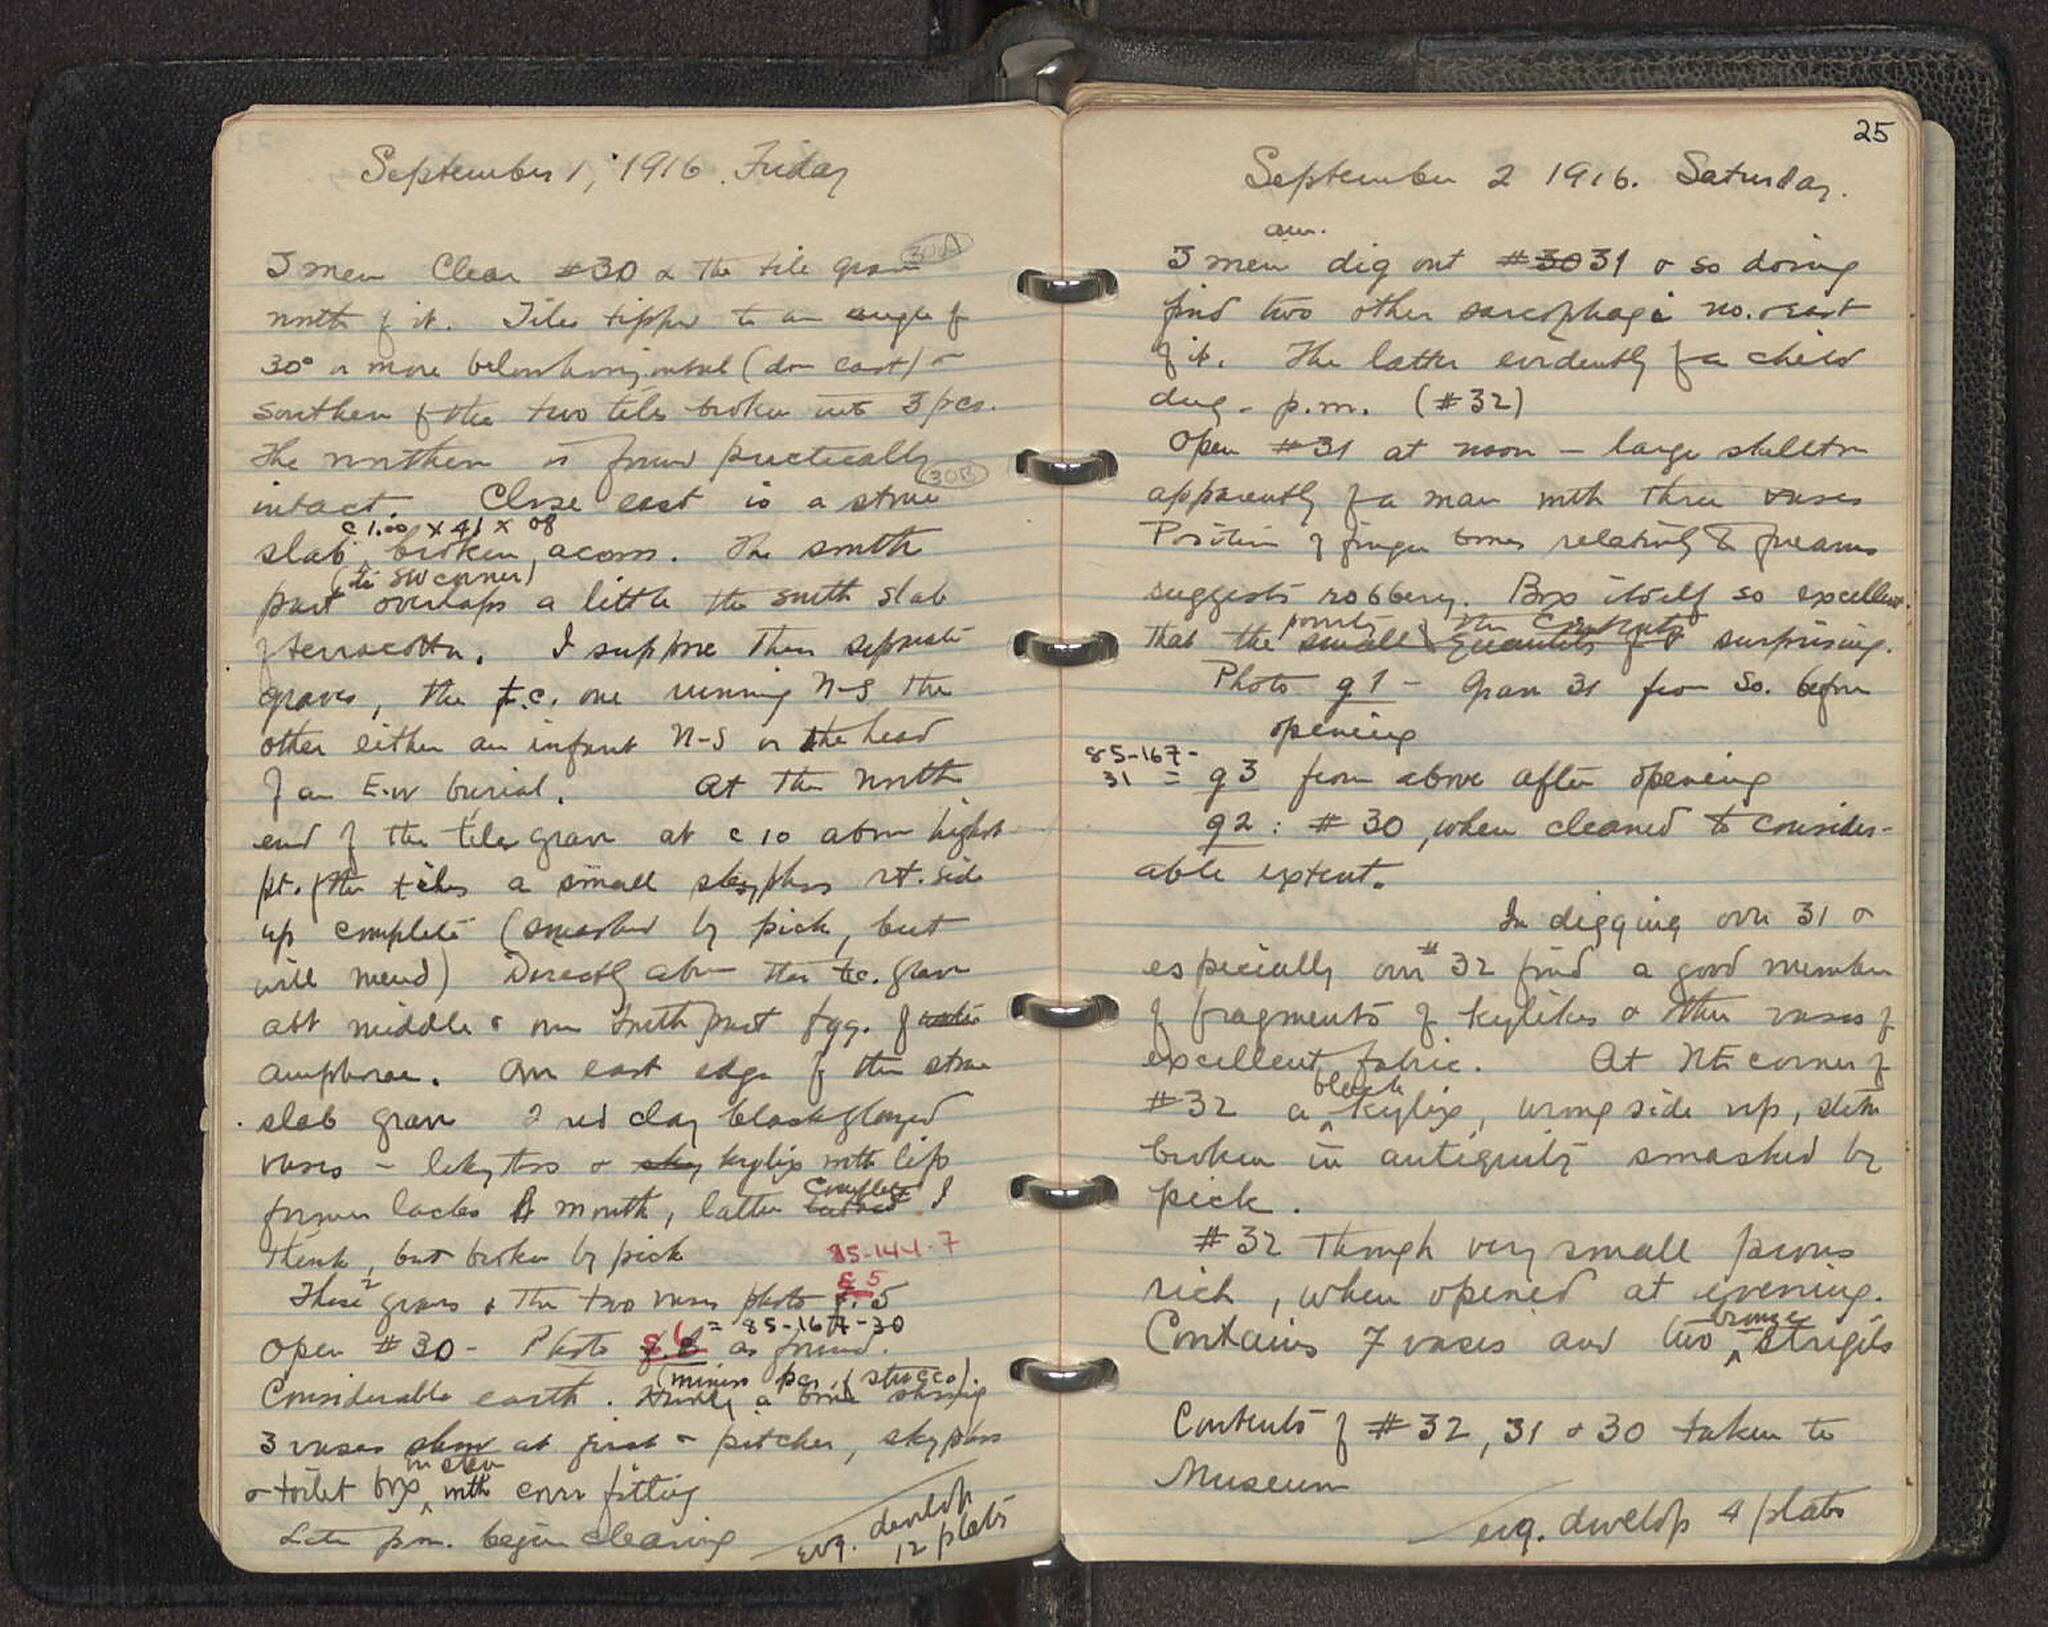 September 1, 1916. Friday
3 men clear #30 & the tile grave 30A
north of it. Tiles tipped to an angle of
30° or more below horizontal (dn east) &
southern of the two tiles broken into 3 pcs.
The northern is found practically
intact. Close east is a stone 30B
c 1.00 x 41 x 08
slab broken across. The south
(to SW corner)
part overlaps a little the south slab
of terracotta. I suppose them separate
graves, the t.c. one running N-S the
other either an infant N-S or the head
of an E-W burial. At the north
end of the tile grave at c 10 above highest
pt. of the tiles a small skyphos rt. side
up complete (smashed by pick, but
will mend) Directly above the t.c. grave
abt middle & over south part fgg. of
amphorae. On east edge of the stone
slab grave 2 red clay black glazed
vases - lekythos & sky kylix with lip
former lacks mouth, latter complete I
think, but broken by pick 85-144-7
These 2 graves & the two vases photo f.5 85
= 85-167-30
Open #30 - Photo 86 as found.
(minus pcs. of stucco).
Considerable earth. Hardly a bone showing
3 vases show at first - pitcher, skyphos
& toilet box with cover fitting
Late p.m. begin clearing
evg. develop
12 plates
25
September 2 1916. Saturday.
am.
3 men dig out #30 31 & so doing
find two other sarcophagi no. & east
of it. The latter evidently of a child
dug - p.m. (#32)
Open #31 at noon - large skeleton
apparently of a man with three vases
Position of finger bones relatively to forearms
suggests robbery. Box itself so excellent
poverty of the contents
that the small quantity of surprising.
Photo g1 - Grave 31 from So. before
opening
85-167-
31 = g3 from above after opening
g2: #30, when cleaned to consider-
able extent.
In digging over 31 &
especially over #32 find a good number
of fragments of kylikes & other vases of
excellent fabric. At NE corner of
black
#32 a kylix, wrong side up, stem
broken in antiquity smashed by
pick.
#32 though very small proves
rich, when opened at evening.
bronze
Contains 7 vases and two strigils
Contents of #32, 31 & 30 taken to
Museum
evg. develop 4 plates